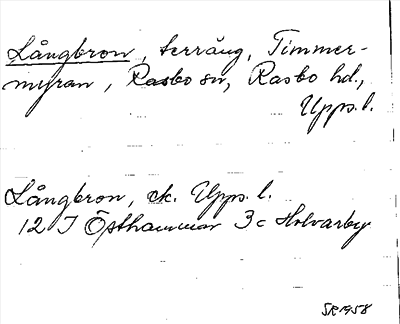 Långbron, terräng, Timmer-
myran, Rasbo sn, Rasbo hd,
Upps. l.
Långbron, ek. Upps. l.
12 I Östhammar 3c Holvarby
SR 1958